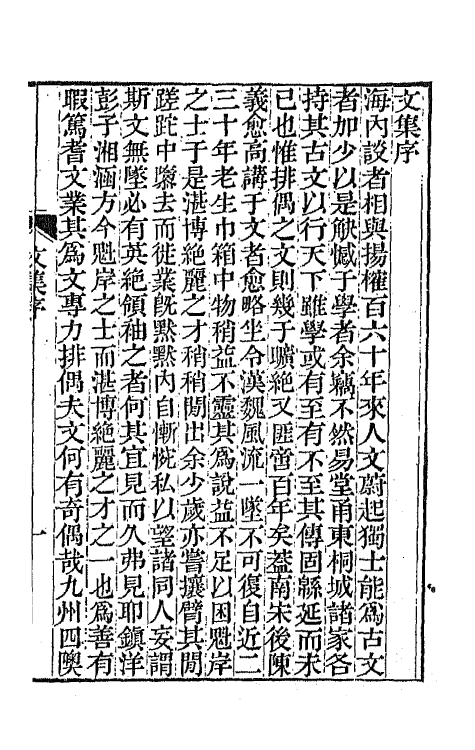 文集序
海內談者相與揚榷百六十年來人文蔚起獨士能爲古文
者加少以是觖憾于學者余竊不然易堂甬東桐城諸家各
持其古文以行天下雖學或有至有不至其傳固緜延而未
已也惟排偶之文則幾于曠絶又匪啻百年矣葢南宋後陳
義愈高講于文者愈略坐令漢魏風流一墜不可復自近二
三十年老生巾箱中物稍益不靈其爲說益不足以困魁岸
之士于是湛博絶麗之才稍稍閒出余少歲亦嘗攘臂其閒
蹉跎中隳去而徙業旣默默內自慚恨私以望諸同人妄謂
斯文無墜必有英絶領袖之者何其宜見而久弗見耶鎮洋
彭子湘涵方今魁岸之士而湛博絶麗之才之一也爲善有
暇篤耆文業其爲文專力排偶夫文何有奇偶哉九州四隩
文集序
一